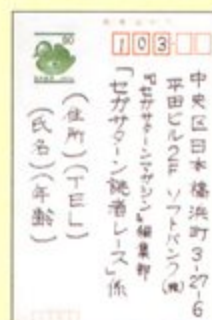 50
103-
中央区日本橋浜町3-27-6
平田ビル2F ソフトバンク(株)
『セガサターンマガジン』編集部
「セガサターン読者レース」係
(住所)(TEL)
(氏名)(年齢)